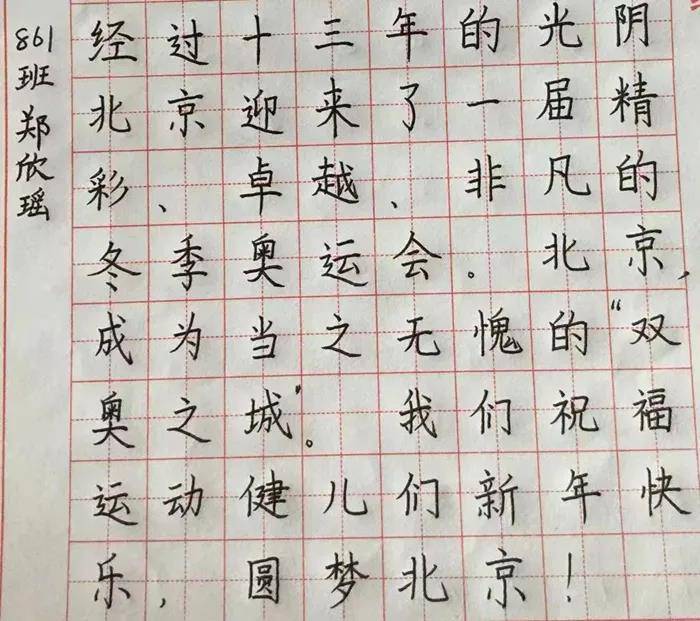 861班 郑欣瑶
经过十三年的光阴
北京迎来了一届精
彩、卓越、非凡的
冬季奥运会。北京,
成为当之无愧的“双
奥之城”。我们祝福
运动健儿们新年快
乐,圆梦北京!